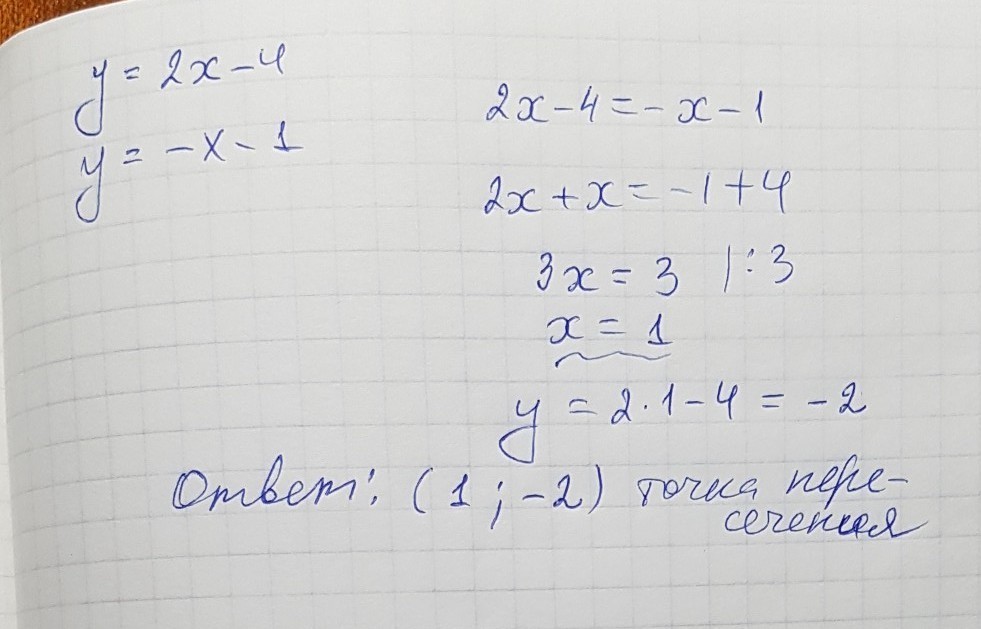 y = 2x - 4
y = -x - 1
2x - 4 = -x - 1
2x + x = -1 + 4
3x = 3 |:3
x = 1
y = 2·1 - 4 = -2
Ответ: (1; -2) точка пере-
сечения